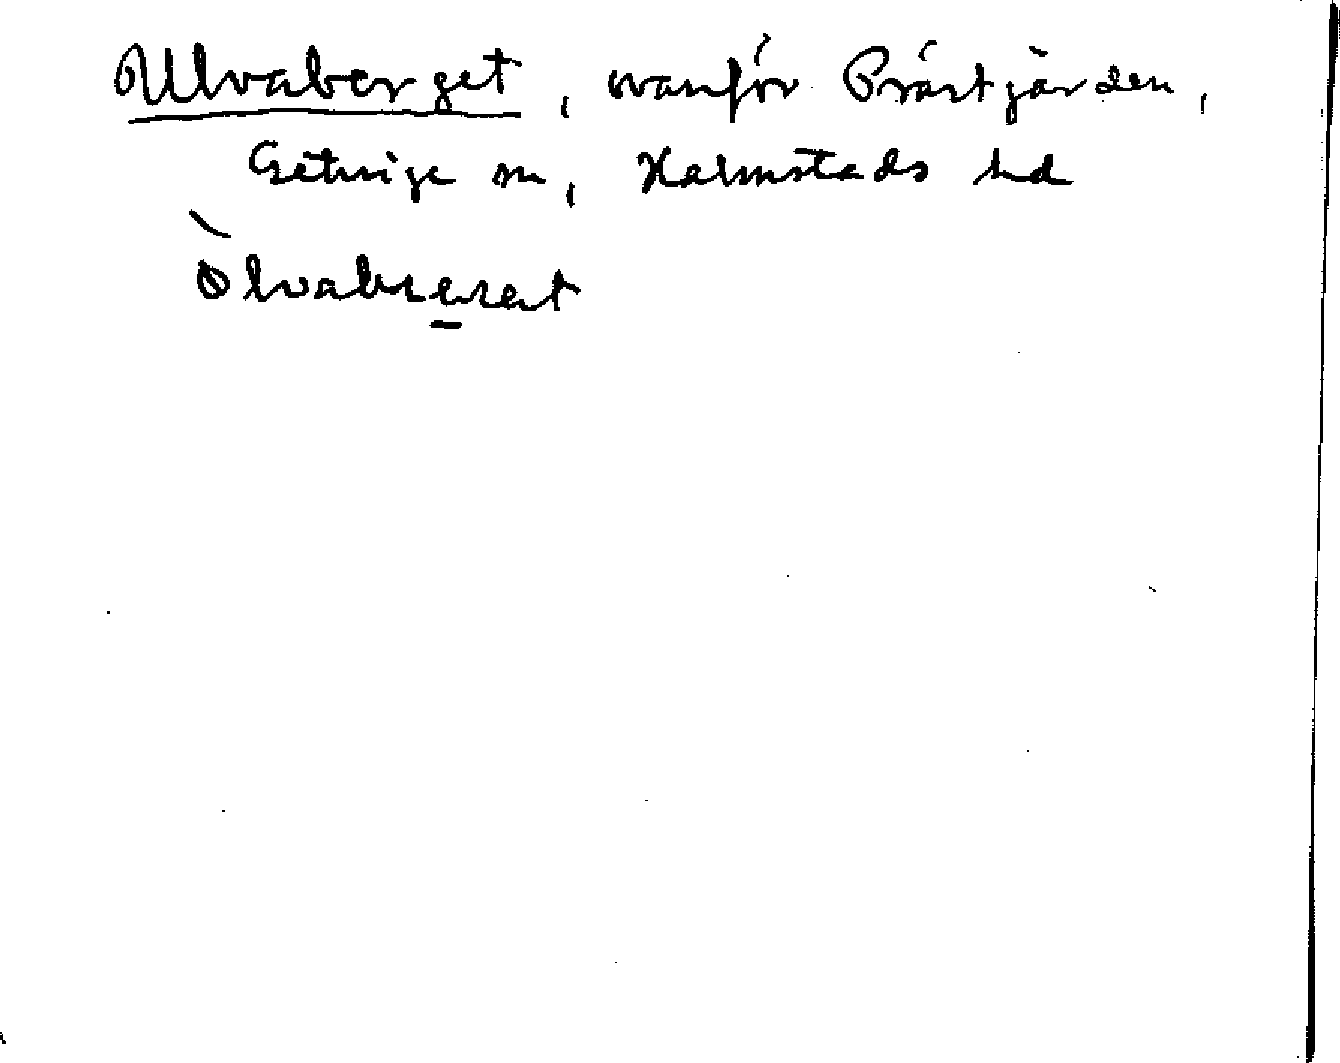 Ulvaberget, ovanför Prästgården,
Getinge sn, Halmstads hd